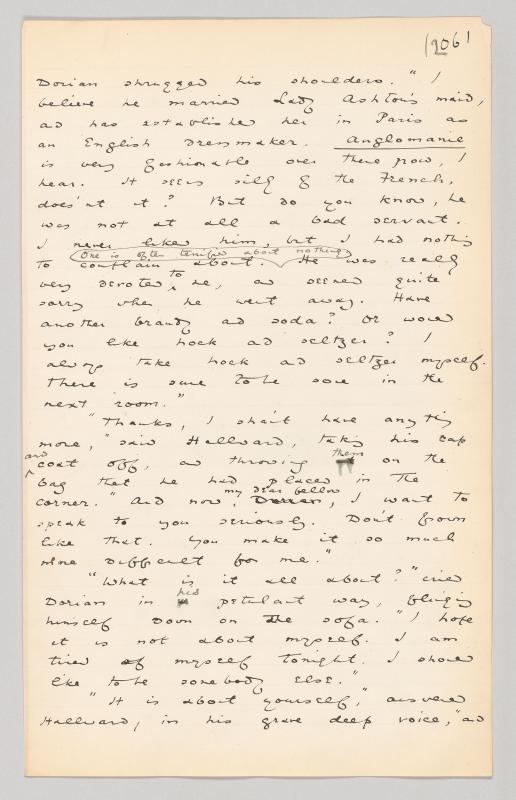 (206)
Dorian shrugged his shoulders. "I
believe he married Lady Ashton's maid,
and has established her in Paris as
an English dressmaker. Anglomanie
is very fashionable over there now, I
hear. It seems silly of the French,
does'nt it? But do you know, he
was not at all a bad servant.
I never liked him, but I had nothing
One is often terrified about nothing
to complain about. He was really
very devoted to me, and seemed quite
sorry when he went away. Have
another brandy and soda? Or would
you like hock and seltzer? I
always take hock and seltzer myself.
There is sure to be some in the
next room."
"Thanks, I shan't have anything
more," said Hallward, taking his cap
and coat off, and throwing them on the
bag that he had placed in the
corner. "And now, my dear fellow, Dorian, I want to
speak to you seriously. Don't frown
like that. You make it so much
more difficult for me."
"What is it all about?" cried
Dorian in his petulant way, flinging
himself down on the sofa. "I hope
it is not about myself. I am
tired of myself tonight. I should
like to be somebody else."
"It is about yourself," answered
Hallward, in his grave deep voice, "and